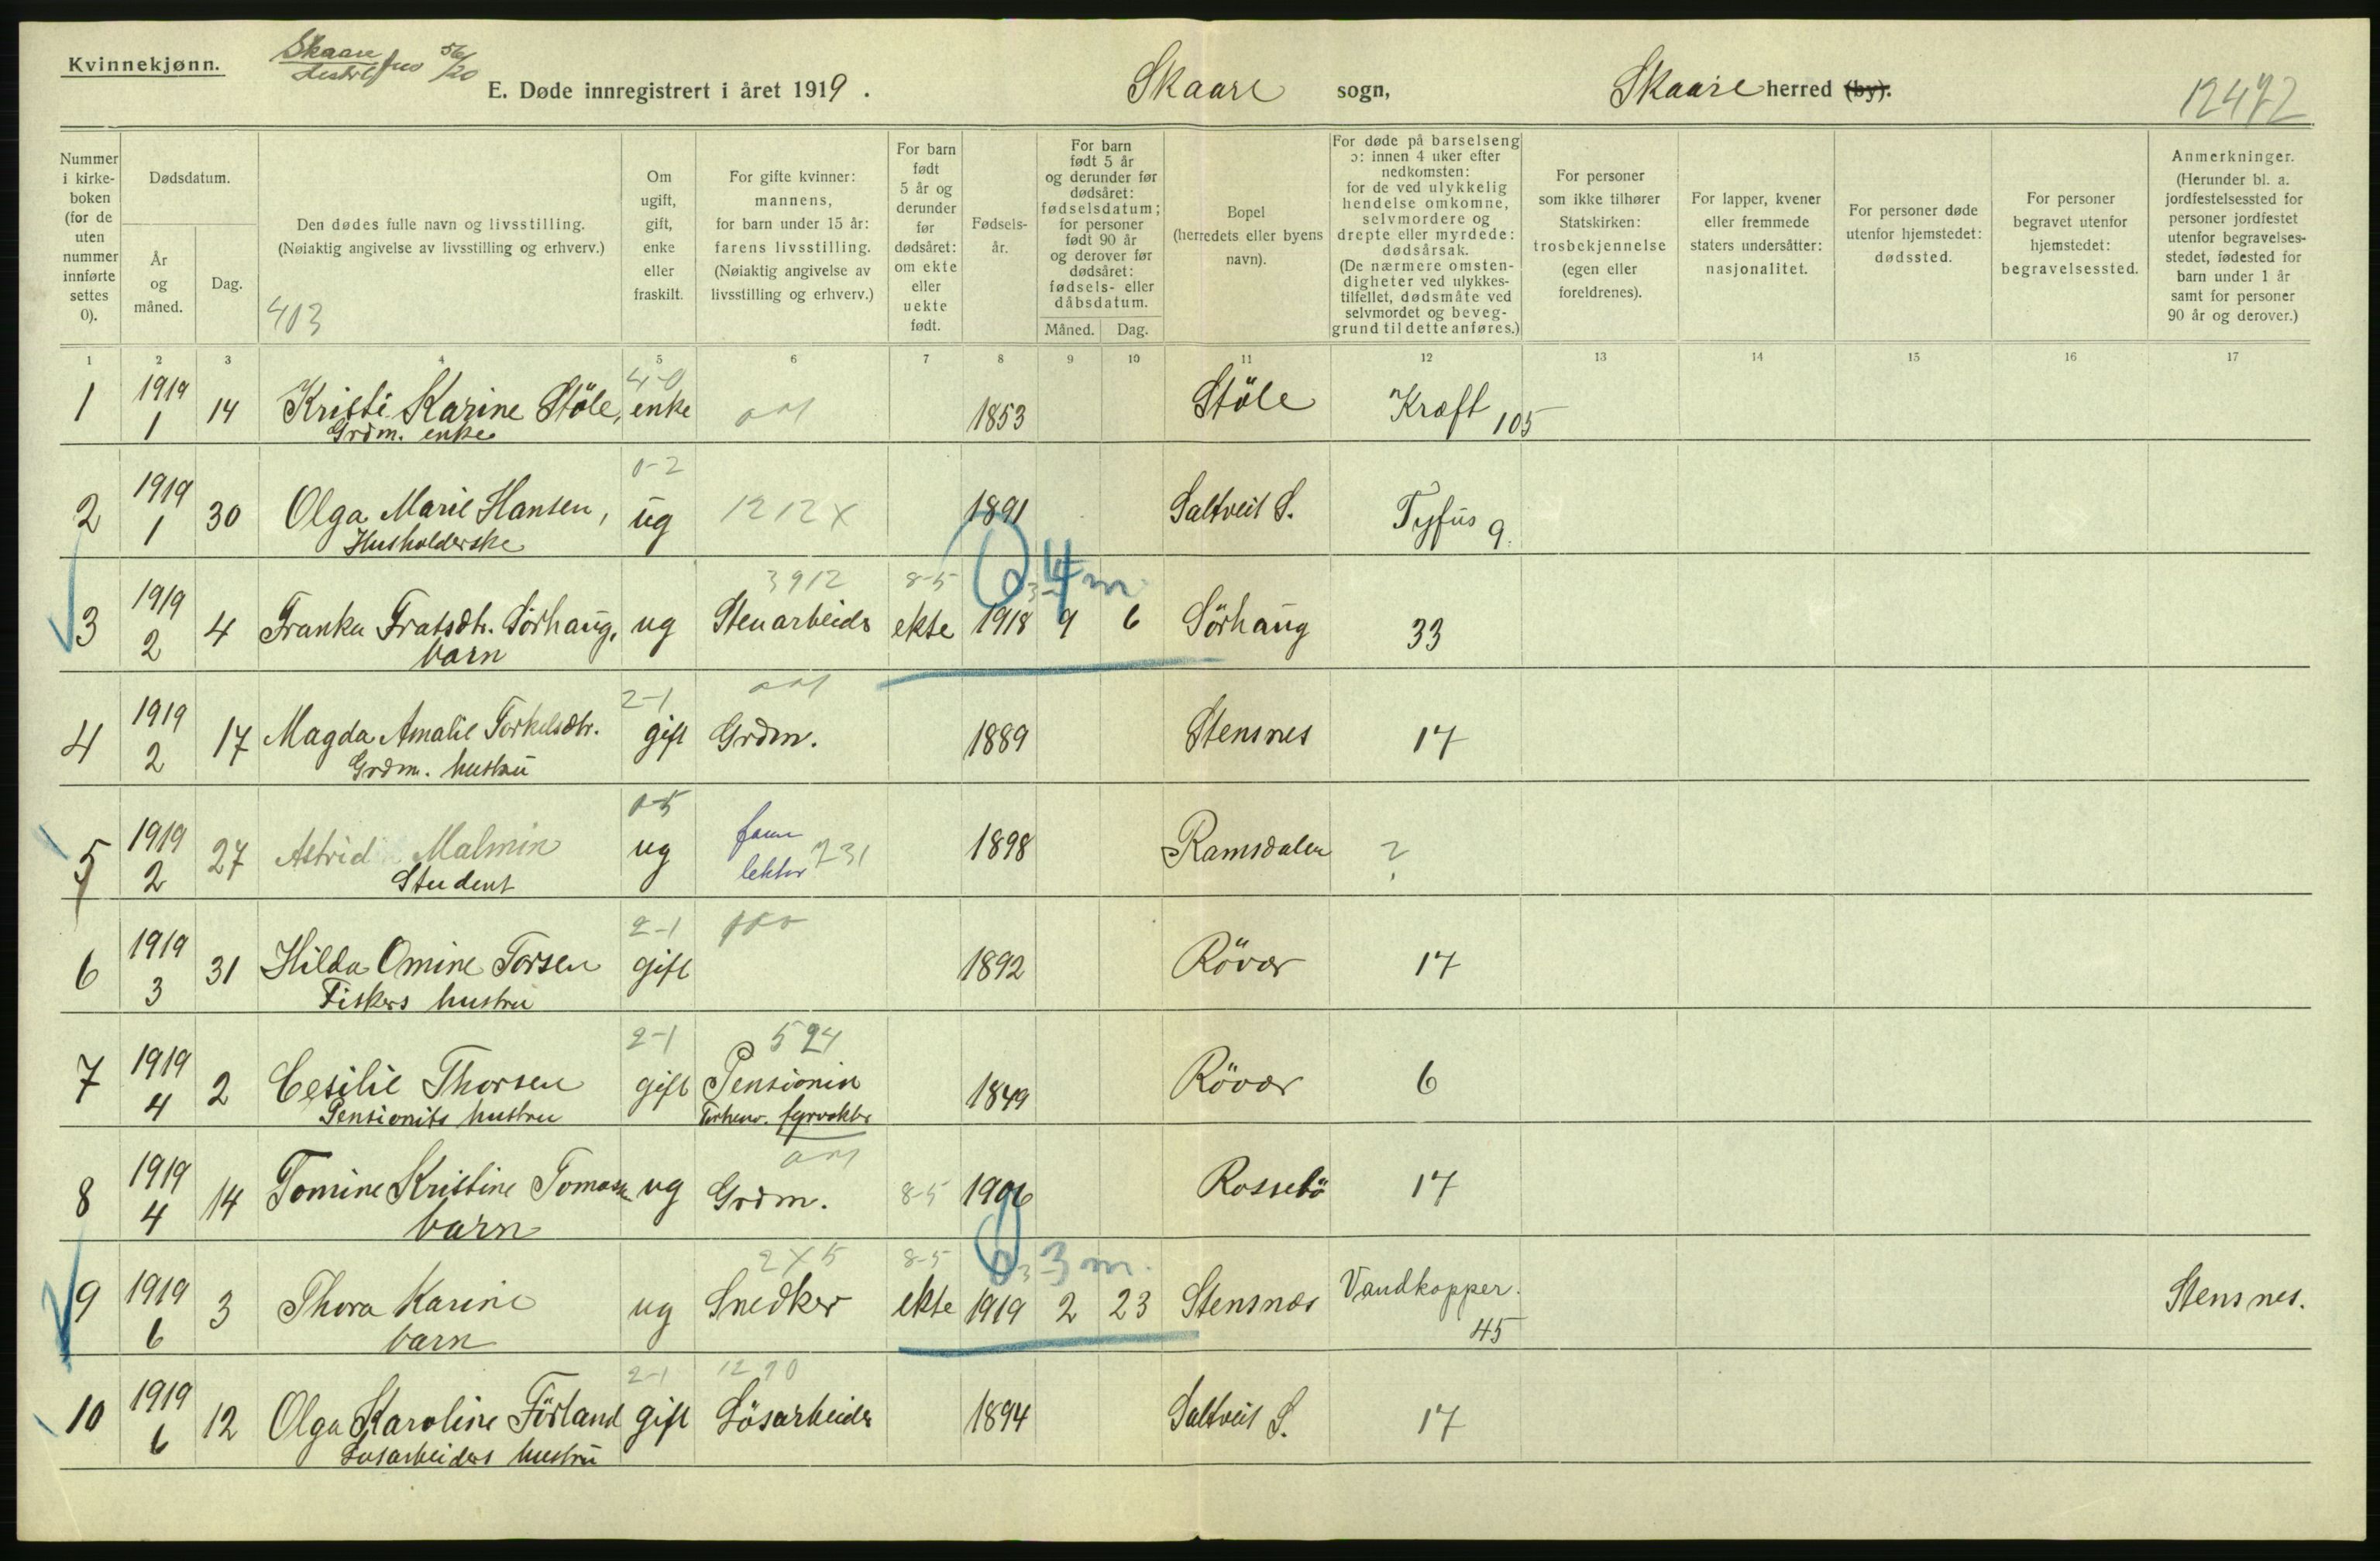 Kvinnekjønn.
Skaare
56/20
E. Døde innregistrert i året 1919.
Skaare sogn,
Skaare herred (by).
12472
Nummer i kirkeboken (for de uten nummer innførte settes 0).
Dødsdatum.
År og måned.
Dag.
Den dødes fulle navn og livsstilling.
(Nøiaktig angivelse av livsstilling og erhverv.)
403
Om ugift, gift, enke eller fraskilt.
For gifte kvinner: mannens, for barn under 15 år: farens livsstilling. (Nøiaktig angivelse av livsstilling og erhverv.)
For barn født 5 år og derunder før dødsåret: om ekte eller uekte født.
Fødsels-år.
For barn født 5 år og derunder før dødsåret: fødselsdatum; for personer født 90 år og derover før dødsåret: fødsels- eller dåbsdatum.
Måned. Dag.
Bopel (herredets eller byens navn).
For døde på barselseng ɔ: innen 4 uker efter nedkomsten: for de ved ulykkelig hendelse omkomne, selvmordere og drepte eller myrdede: dødsårsak. (De nærmere omsten-digheter ved ulykkes-tilfellet, dødsmåte ved selvmordet og beveg-grund til dette anføres.)
For personer som ikke tilhører Statskirken: trosbekjennelse (egen eller foreldrenes).
For lapper, kvener eller fremmede staters undersåtter: nasjonalitet.
For personer døde utenfor hjemstedet: dødssted.
For personer begravet utenfor hjemstedet: begravelsessted.
Anmerkninger. (Herunder bl. a. jordfestelsessted for personer jordfestet utenfor begravelses-stedet, fødested for barn under 1 år samt for personer 90 år og derover.)
1 2 3 4 5 6 7 8 9 10 11 12 13 14 15 16 17
4-0
1 1919 1 14 Kristi Karine Støle, enke 1853 Støle Kræft 105
Grdm. enke
0-2
2 1919 1 30 Olga Marie Hansen, ug 1212x 1891 Saltveit S. Tyfus 9.
Husholderske
3912 8-5 0 3 4 m.
3 1919 2 4 Franka Fratsdtr. Sörhaug, ug Stenarbeider ekte 1918 9 6 Sörhaug 33
barn
2-1
4 1919 2 17 Magda Amalie Torkelsdtr. gift Grdm. 1889 Stensnes 17
Grdm. hustru
0-5
5 1919 2 27 Astrid Malmin ug lektor 731 1898 Ramsdalen ?
Student
2-1
6 1919 3 31 Hilda Omine Torsen gift 1892 Rövær 17
Fiskers hustru
2-1 594
7 1919 4 2 Cesilie Thorsen gift Pensionist 1849 Rövær 6
Pensionists hustru fyrvokter
8 1919 4 14 Tomine Kristine ug Grdm. 8-5 1906 Rossebö 17
barn
2x5 8-5 0 3 3 m.
9 1919 6 3 Thora Karine ug Snedker ekte 1919 2 23 Stensnæs Vandkopper. 45 Stensnes.
barn
2-1 1290
10 1919 6 12 Olga Karoline Förland gift Lösarbeider 1894 Saltveit S. 17
Løsarbeiders hustru